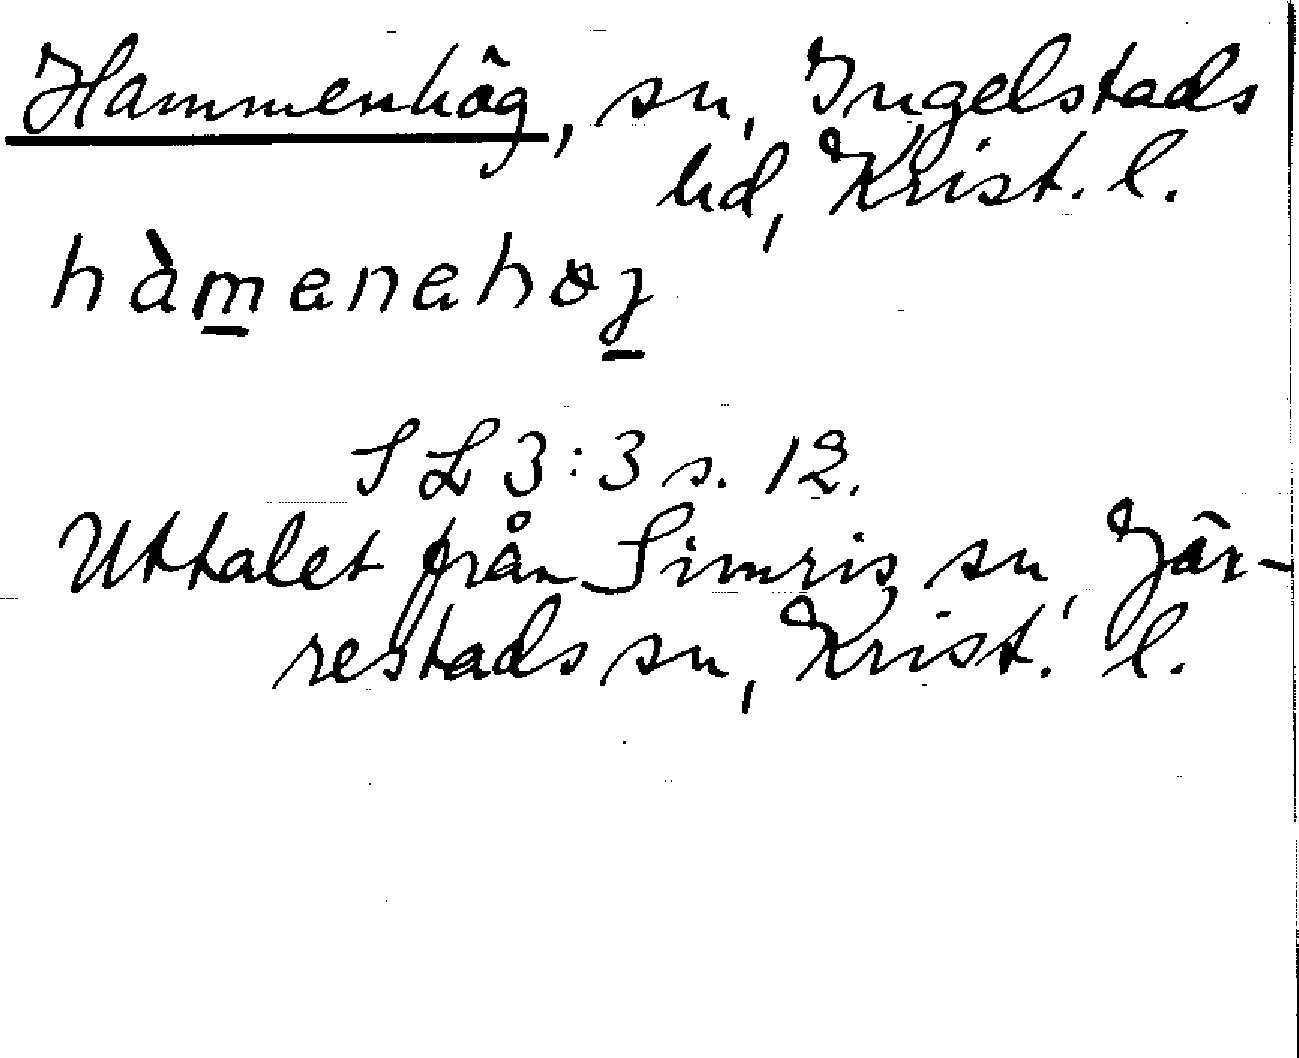 Hammenhög, sn, Ingelstads
hd, Krist. l.
hàm̲ənəhøʒ̲
SL 3:3 s. 12.
Uttalet från Simris sn, Jär-
restads sn, Krist. l.